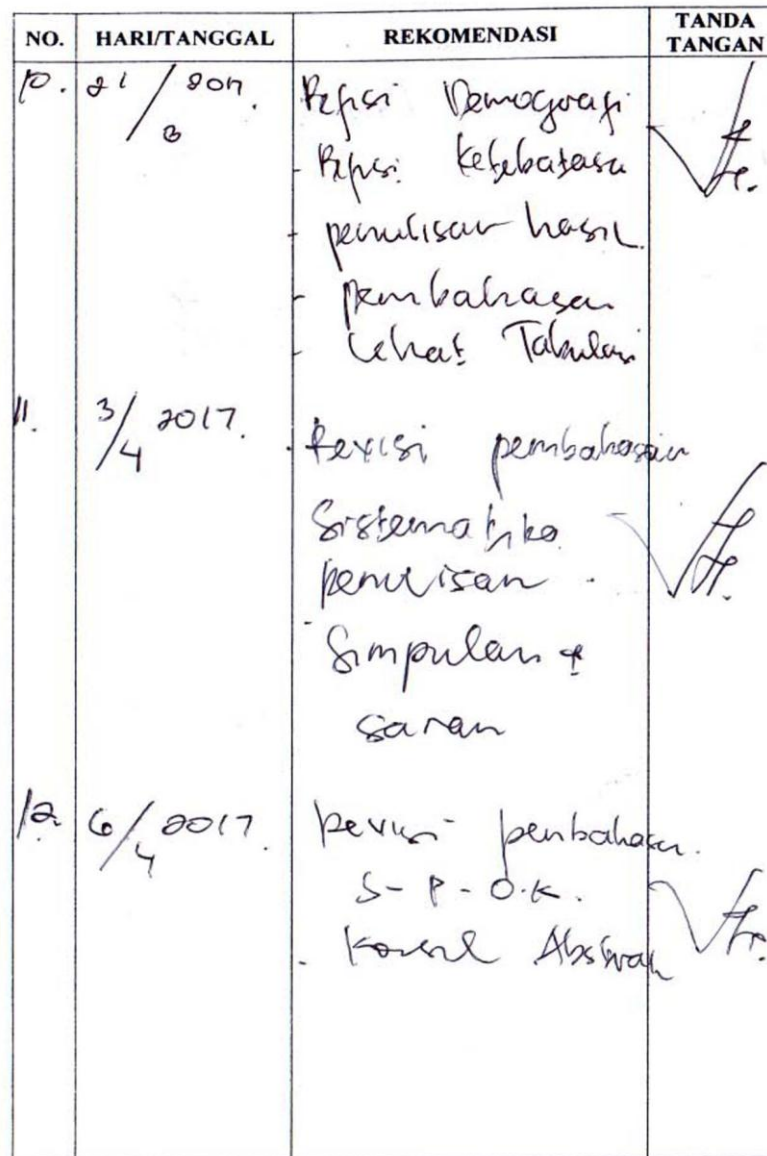 NO. HARI/TANGGAL REKOMENDASI TANDA TANGAN
10. 21/3 2017. Refisi Demografi
- Refisi Ketebatasa
- penulisan hasil
- pembahasan
- Lehat Tabulasi
11. 3/4 2017. Revisi pembahasan
Sistematika
penulisan
Simpulan &
saran
12. 6/4 2017. Revisi pembahasan.
S-P-O.K.
Konsul Abstrak